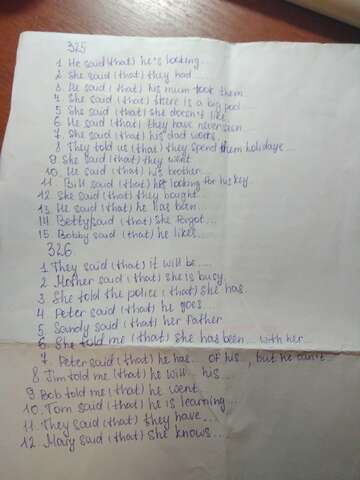 325
1. He said (that) he's looking...
2 She said (that) they had....
3. He said (that) his mum took them
4 She said (that) there is a big pool....
5 She said (that) she doesn't like
6. He said (that) they have never seen...
7. She said (that) his dad works..
8 They told us (that) they spend them holidaye...
9 She said (that) they went
10. He said (that) his brother...
11. Bill said (that) he's looking for his key.
12. She said (that) they bought
13. He said (that) he has been...
14. Betty said (that) she forgot....
15. Bobby said (that) he likes...
326
1. They said (that) it will be....
2 Mother said (that) she is busy.
3 She told the police (that) she has.
4 Peter said (that) he goes...
5 Sandy said (that) her father
6. She told me (that) she has been... with her...
7. Peter said (that) he has... of his..., but he can't...
8 Jim told me (that) he will... his....
9 Bob told me (that) he went...
10. Tom said (that) he is learning....
11. They said (that) they have....
12. Mary said (that) she knows...